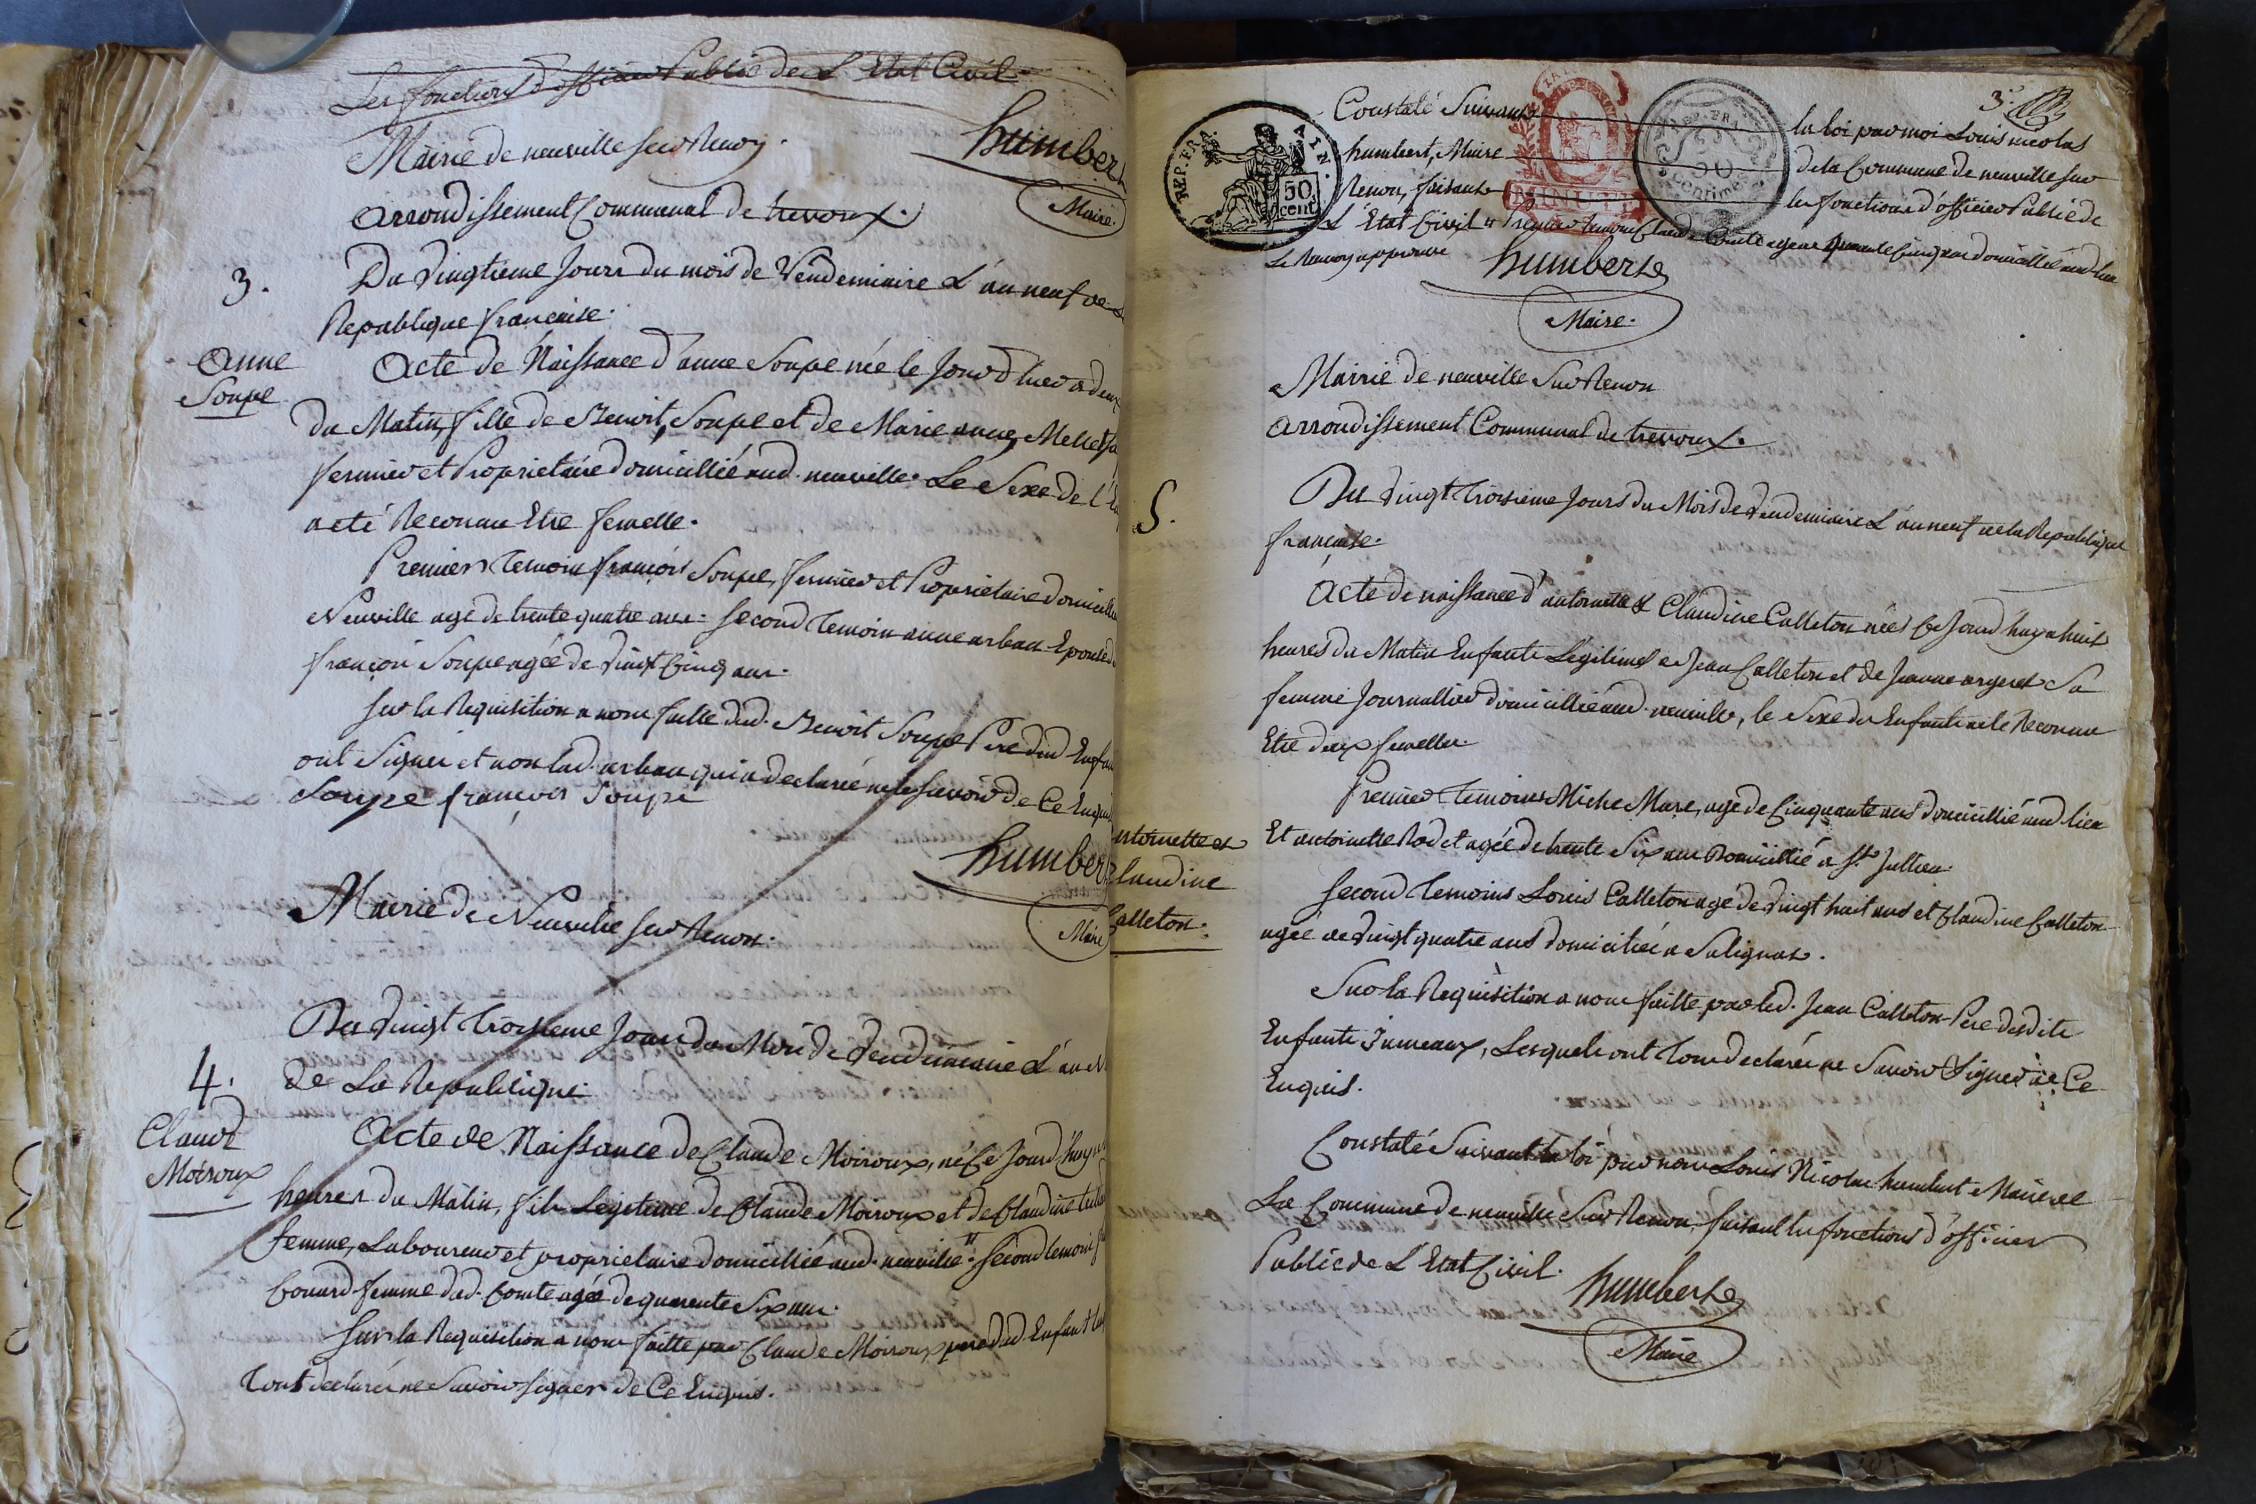 Les fonctions d'officier Public de L'Etat Civil.
humbert
Maire.
Mairie de neuville sur Renon.
arrondissement Communal de trevoux.
3.
Du vingtieme Jours du mois de Vendemiaire L'an neuf de
Republique francaise.
anne
Soupe
Acte de Naissance d'anne Soupe née le Jour d'hier a deux
du Matin, fille de Benoit, Soupe et de Marie anne
fermier et Proprietaire domicillié aud. neuville. Le Sexe de l'
a eté Reconnu Etre femelle.
Premier temoin françois Soupe, fermier et Proprietaire domicillié
Neuville agé de trente quatre ans. second temoin anne arbau Epouse
françois Soupe agée de vingt Cinq ans.
sur la Requisition a nous faitte dud. Benoit Soupe Pere dud Enfan
ont Signer et non lad. arbau qui a declarée ne le savoir de Ce Enquis
Soupe françois Soupe
humber
Maire
Mairie de Neuville sur Renon.
4.
Du vingt troisieme Jour du Mois de Vendemiaire L'an
de La Republique
Claude
Moiroux
Acte de Naissance de Claude Moiroux, né Ce Jourd'huy
heures du Matin, fils Legitime de Claude Moiroux et de Claudine
femme, Laboureur et proprietaire domicillié aud. neuville # second temoin
Couard femme dud. Comte agée de quarente Six ans.
Sur la Requisition a nous faitte par Claude Moiroux pere dud. Enfant
tout declarée ne Savoir signer de Ce Enquis.
3e.
REP. FRA. AIN.
50 cent.
MINUTE
REP. FRA.
50
centimes
Constaté Suivant la loi par moi Louis nicolas
humbert, Maire de la Commune de neuville sur
Renon, faisant les fonctions d'officier Public de
L'Etat Civil # Premier temoin Claude Comte agé de quarante Cinq ans domicillié aud. lieu
Le Renvoy approuvé
humbert
Maire.
Mairie de neuville Sur Renon
arrondissement Communal de trevoux.
5.
Du vingt troisieme Jours du Mois de vendemiaire L'an neuf de la Republique
française.
antoinette et
Claudine
Calleton.
Acte de naissance d'antoinette & Claudine Calleton nées Ce Jourd'huy a huit
heures du Matin Enfants Légitimes de Jean Calleton et de Jeanne argeret Sa
femme Journallier domicillié aud. neuville, le Sexe des Enfants a eté Reconnu
Etre deux femelles.
Premier temoins Miche Mare, agé de Cinquante ans domicillié aud. lieu
Et antoinette Rodet agée de trente Six ans domicillié a St. Jullien
Second temoins Louis Calleton agé de vingt huit ans et Claudine Calleton
agée de vingt quatre ans domicilié a Salignat.
Sur la Requisition a nous faitte par led. Jean Calleton Pere desdits
Enfants Jumeaux, Lesquels ont tous declarée ne Savoir Signer de Ce
Enquis.
Constaté Suivant la loi par nous Louis Nicolas humbert Maire de
La Commune de neuville Sur Renon, faisant les fonctions d'officier
Public de L'Etat Civil.
humbert
Maire